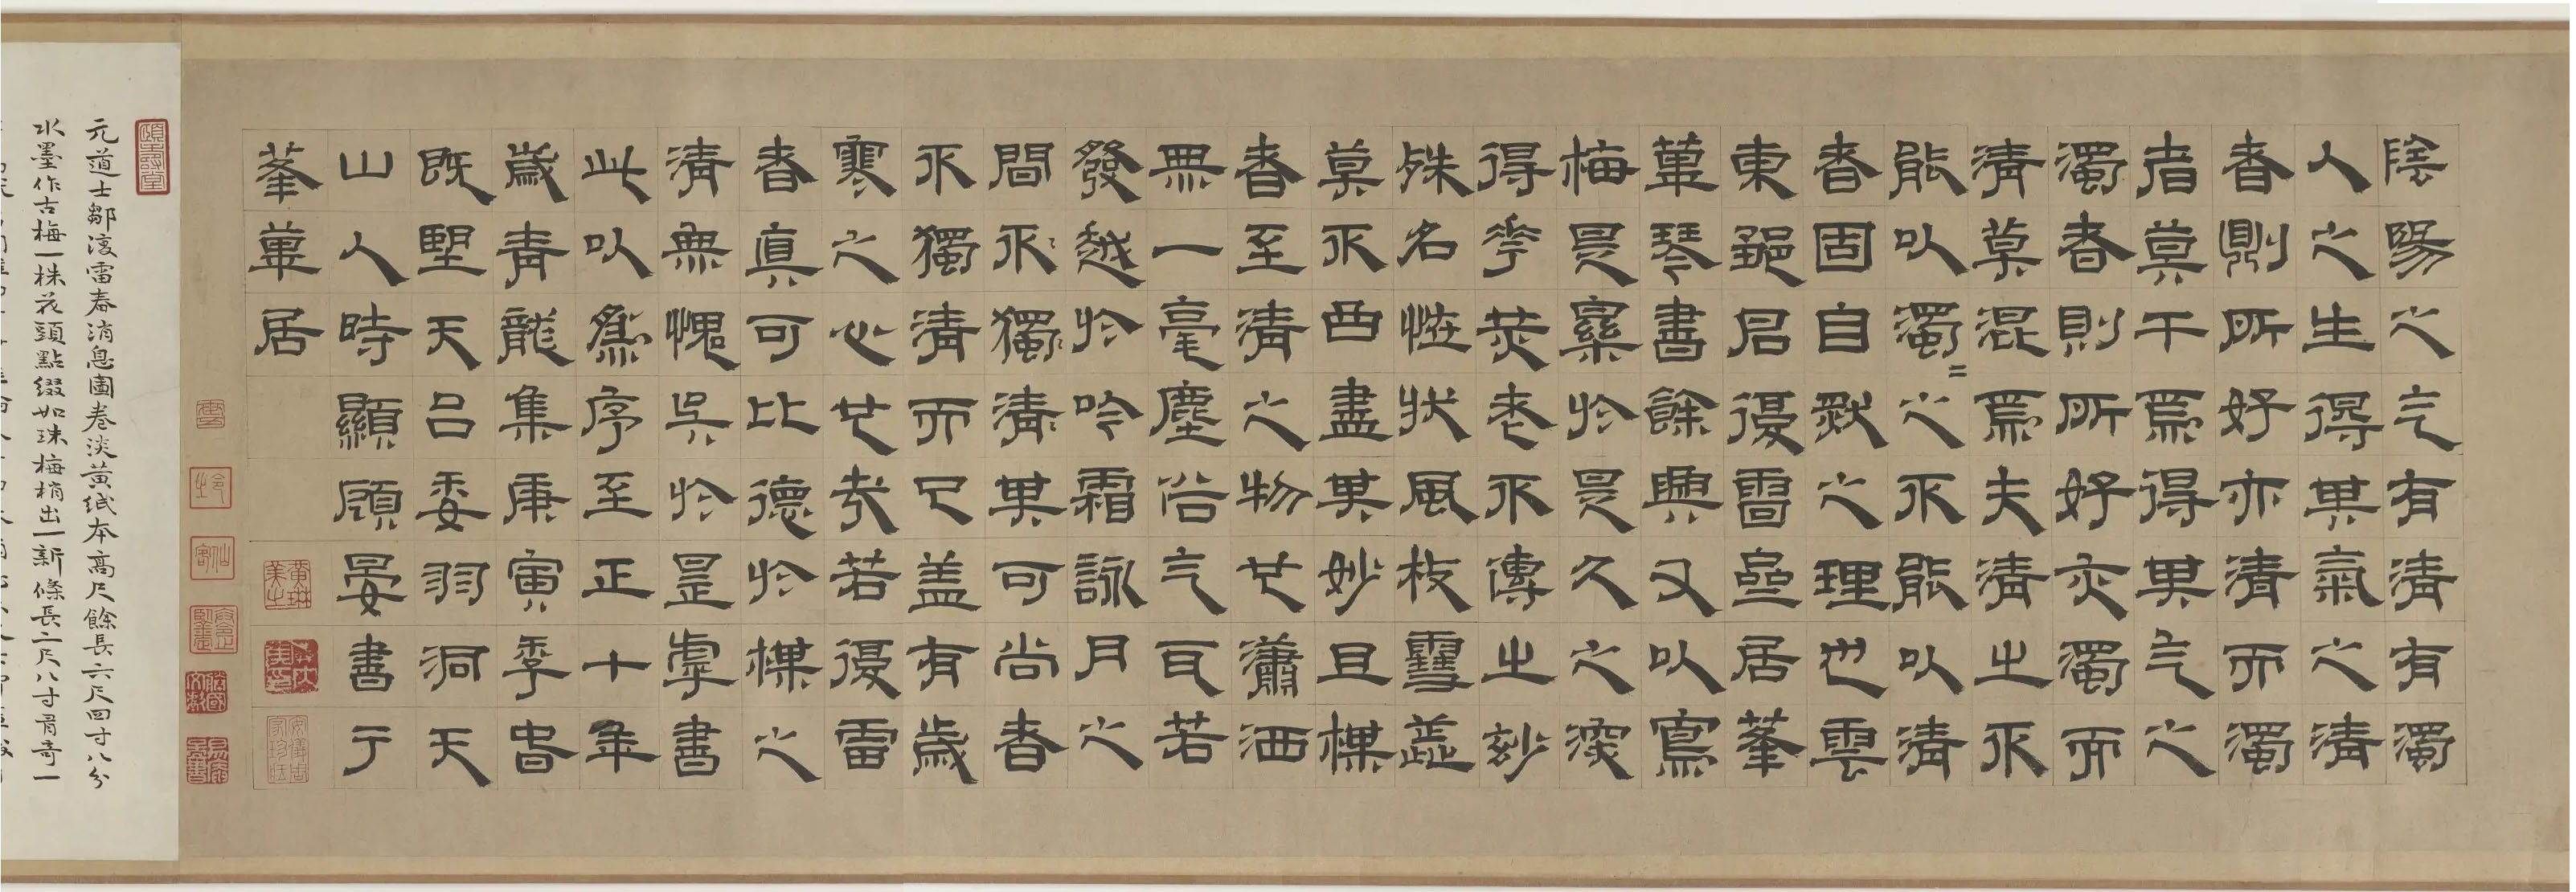 陰陽之气有清有濁
人之生得其氣之清
者則所好亦清而濁
者莫干焉得其气之
濁者則所好亦濁而
清莫混焉夫清之不
能以濁=之不能以清
者固自然之理也雲
東鄒君復雷扁居蓬
蓽琴書餘興又以寫
梅是寀於是久之深
得華炗老不傳之玅
殊名恠狀風枝雪蕊
莫不曲盡其妙且楳
者至清之物也瀟洒
無一毫塵俗气宜若
發越於吟霜詠月之
間不獨清其可尚者
不獨清而已盖有歲
寒之心也哉若復雷
者真可比德於楳之
清無愧矣於是虖書
此以爲序至正十年
歲青龍集庚寅季春
既望天台委羽洞天
山人時顯顧晏書于
蓬蓽居
元道士鄒復雷春消息圖卷淡黃紙本高尺餘長六尺四寸八分
水墨作古梅一株花頭點綴如珠梅梢出一新條長二尺八寸有奇一